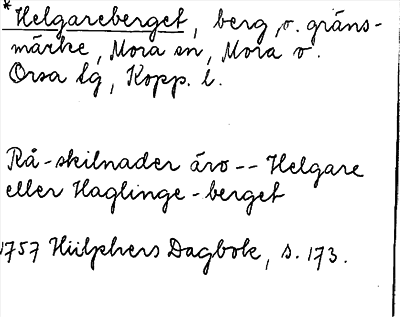 *Helgareberget, berg o. gräns-
märke, Mora sn, Mora o.
Orsa tg, Kopp. l.
Rå-skilnader äro -- Helgare
eller Haglinge-berget
1757 Hülphers Dagbok, s. 173.